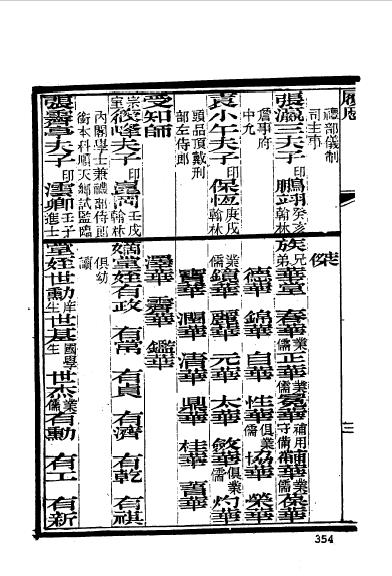 履歷
禮部儀制
司主事
張瀛三夫子印鵬翊癸亥翰林
詹事府
中允
袁小午夫子印保恆庚戌翰林
頭品頂戴刑
部左侍郎
受知師
宗室筱峰夫子印崑岡壬戌翰林
內閣學士兼禮部侍郎
銜本科順天鄉試監臨
張壽亭夫子印澐卿壬子進士
傑
族兄弟華堂 春華業儒正華業儒冕華補用守備黼華業儒葆華
德華 錦華 自華 性華俱業儒協華 榮華
業儒鎖華 麗華 元華 太華 敏華俱業儒灼華
寶華 潤華 清華 鼎華 桂華 萱華
澤華 壽華 鑑華
嫡堂姪有政 有常 有貞 有濟 有乾 有祺
俱幼
讀
堂姪世勳庠生世基國學生世杰業儒有勳 有工 有新
354